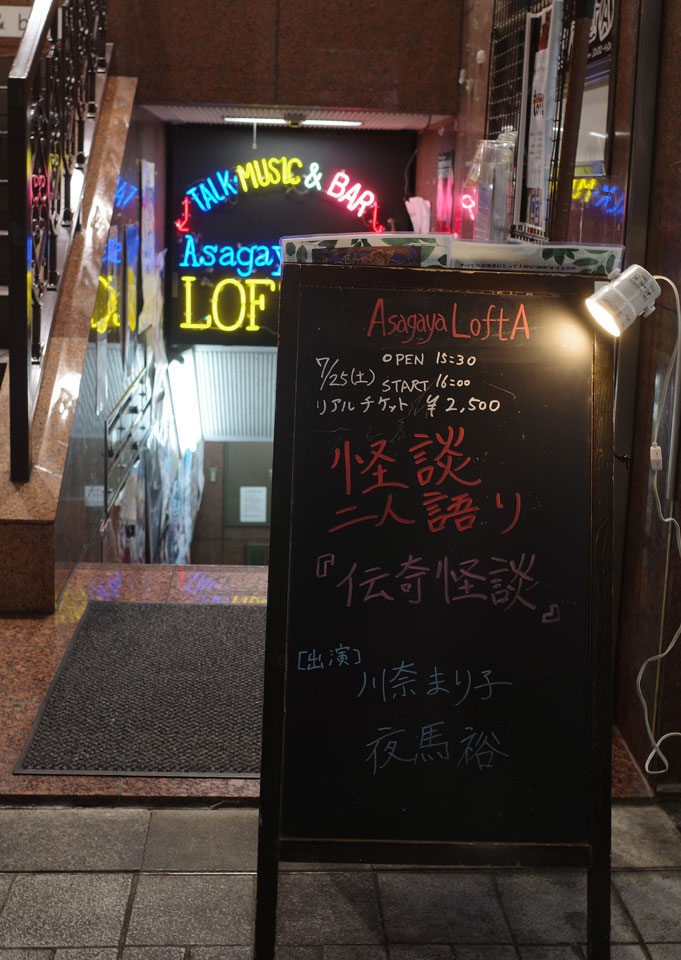 TALK・MUSIC & BAR
Asagaya
LOF
Asagaya LoftA
7/25(土)
OPEN 15:30
START 16:00
リアルチケット ¥2,500
怪談
二人語り
『伝奇怪談』
[出演]
川奈まり子
夜馬裕